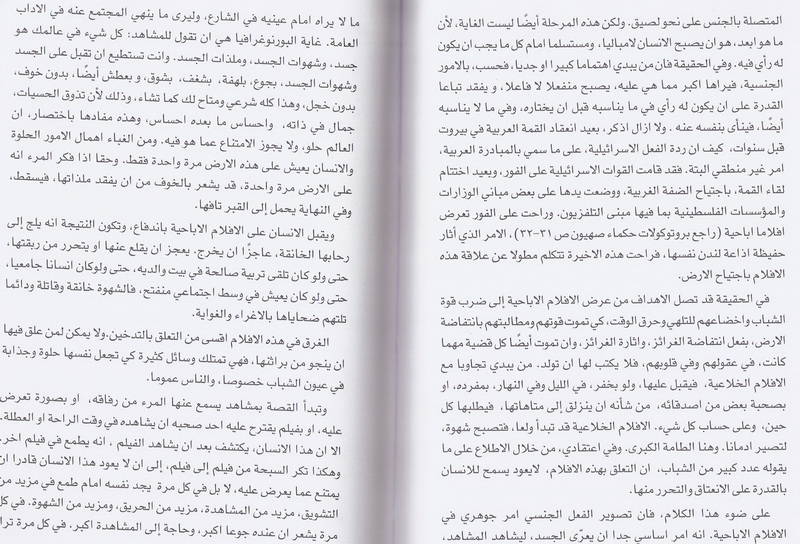 المتصلة بالجنس على نحو لصيق. ولكن هذه المرحلة أيضًا ليست الغاية، لأن
ما هو ابعد، هو ان يصبح الانسان لامباليا، ومستسلما امام كل ما يجب ان يكون
له رأي فيه. وفي الحقيقة فان من يبدي اهتماما كبيرا او جديا، فحسب، بالامور
الجنسية، فيراها اكبر مما هي عليه، يصبح منفعلا لا فاعلا، و يفقد تباعا
القدرة على ان يكون له رأي في ما يناسبه قبل ان يختاره، وفي ما لا يناسبه
أيضًا، فينأى بنفسه عنه . ولا ازال اذكر، بعيد انعقاد القمة العربية في بيروت
قبل سنوات، كيف ان ردة الفعل الاسرائيلية، على ما سمي بالمبادرة العربية،
امر غير منطقي البتة. فقد قامت القوات الاسرائيلية على الفور، وبعيد اختتام
لقاء القمة، باجتياح الضفة الغربية، ووضعت يدها على بعض مباني الوزارات
والمؤسسات الفلسطينية بما فيها مبنى التلفزيون. وراحت على الفور تعرض
افلاما اباحية (راجع بروتوكولات حكماء صهيون ص ٣١-٣٢)، الامر الذي أثار
حفيظة اذاعة لندن نفسها، فراحت هذه الاخيرة تتكلم مطولا عن علاقة هذه
الافلام باجتياح الارض.
في الحقيقة قد تصل الاهداف من عرض الافلام الاباحية إلى ضرب قوة
الشباب واخضاعهم للتلهي وحرق الوقت، كي تموت قوتهم ومطالبتهم بانتفاضة
الارض، بفعل انتفاضة الغرائز، واثارة الغرائز، وان تموت أيضًا كل قضية مهما
كانت، في عقولهم وفي قلوبهم، فلا يكتب لها ان تولد. من يبدي تجاوبا مع
الافلام الخلاعية، فيقبل عليها، ولو بخفر، في الليل وفي النهار، بمفرده، او
بصحبة بعض من اصدقائه، من شأنه ان ينزلق إلى متاهاتها، فيطلبها كل
حين، وعلى حساب كل شيء. الافلام الخلاعية قد تبدأ ولعا، فتصبح شهوة،
لتصير ادمانا. وهنا الطامة الكبرى. وفي اعتقادي، من خلال الاطلاع على ما
يقوله عدد كبير من الشباب، ان التعلق بهذه الافلام، لايعود يسمح للانسان
بالقدرة على الانعتاق والتحرر منها.
على ضوء هذا الكلام، فان تصوير الفعل الجنسي امر جوهري في
الافلام الاباحية. انه امر اساسي جدا ان يعرّي الجسد، ليشاهد المشاهد،
ما لا يراه امام عينيه في الشارع، وليرى ما ينهي المجتمع عنه في الاداب
العامة. غاية البورنوغرافيا هي ان تقول للمشاهد: كل شيء في عالمك هو
جسد، وشهوات الجسد، وملذات الجسد. وانت تستطيع ان تقبل على الجسد
وشهوات الجسد، بجوع، بلهفة، بشغف، بشوق، و بعطش أيضًا، بدون خوف،
بدون خجل، وهذا كله شرعي ومتاح لك كما تشاء، وذلك لأن تذوق الحسيات،
جمال في ذاته، واحساس ما بعده احساس، وهذه مفادها باختصار، ان
العالم حلو، ولا يجوز الامتناع عما هو فيه. ومن الغباء اهمال الامور الحلوة
والانسان يعيش على هذه الارض مرة واحدة فقط. وحقا اذا فكر المرء انه
على الارض مرة واحدة، قد يشعر بالخوف من ان يفقد ملذاتها، فيسقط،
وفي النهاية يحمل إلى القبر تافها.
ويقبل الانسان على الافلام الاباحية باندفاع، وتكون النتيجة انه يلج إلى
رحابها الخانقة، عاجزًا ان يخرج. يعجز ان يقلع عنها او يتحرر من ربقتها،
حتى ولو كان تلقى تربية صالحة في بيت والديه، حتى ولوكان انسانا جامعيا،
حتى ولو كان يعيش في وسط اجتماعي منفتح، فالشهوة خانقة وقاتلة ودائما
تلتهم ضحاياها بالاغراء والغواية.
الغرق في هذه الافلام اقسى من التعلق بالتدخين.ولا يمكن لمن علق فيها
ان ينجو من براثنها، فهي تمتلك وسائل كثيرة كي تجعل نفسها حلوة وجذابة
في عيون الشباب خصوصا، والناس عموما.
وتبدأ القصة بمشاهد يسمع عنها المرء من رفاقه، او بصورة تعرض
عليه، او بفيلم يقترح عليه احد صحبه ان يشاهده في وقت الراحة او العطلة.
الا ان هذا الانسان، يكتشف بعد ان يشاهد الفيلم ، انه يطمع في فيلم اخر.
وهكذا تكر السبحة من فيلم إلى فيلم، إلى ان لا يعود هذا الانسان قادرا ان
يمتنع عما يعرض عليه، لا بل في كل مرة يجد نفسه امام طمع في مزيد من
التشويق، مزيد من المشاهدة، مزيد من الحريق، ومزيد من الشهوة. في كل
مرة يشعر ان عنده جوعا اكبر، وحاجة إلى المشاهدة اكبر. في كل مرة